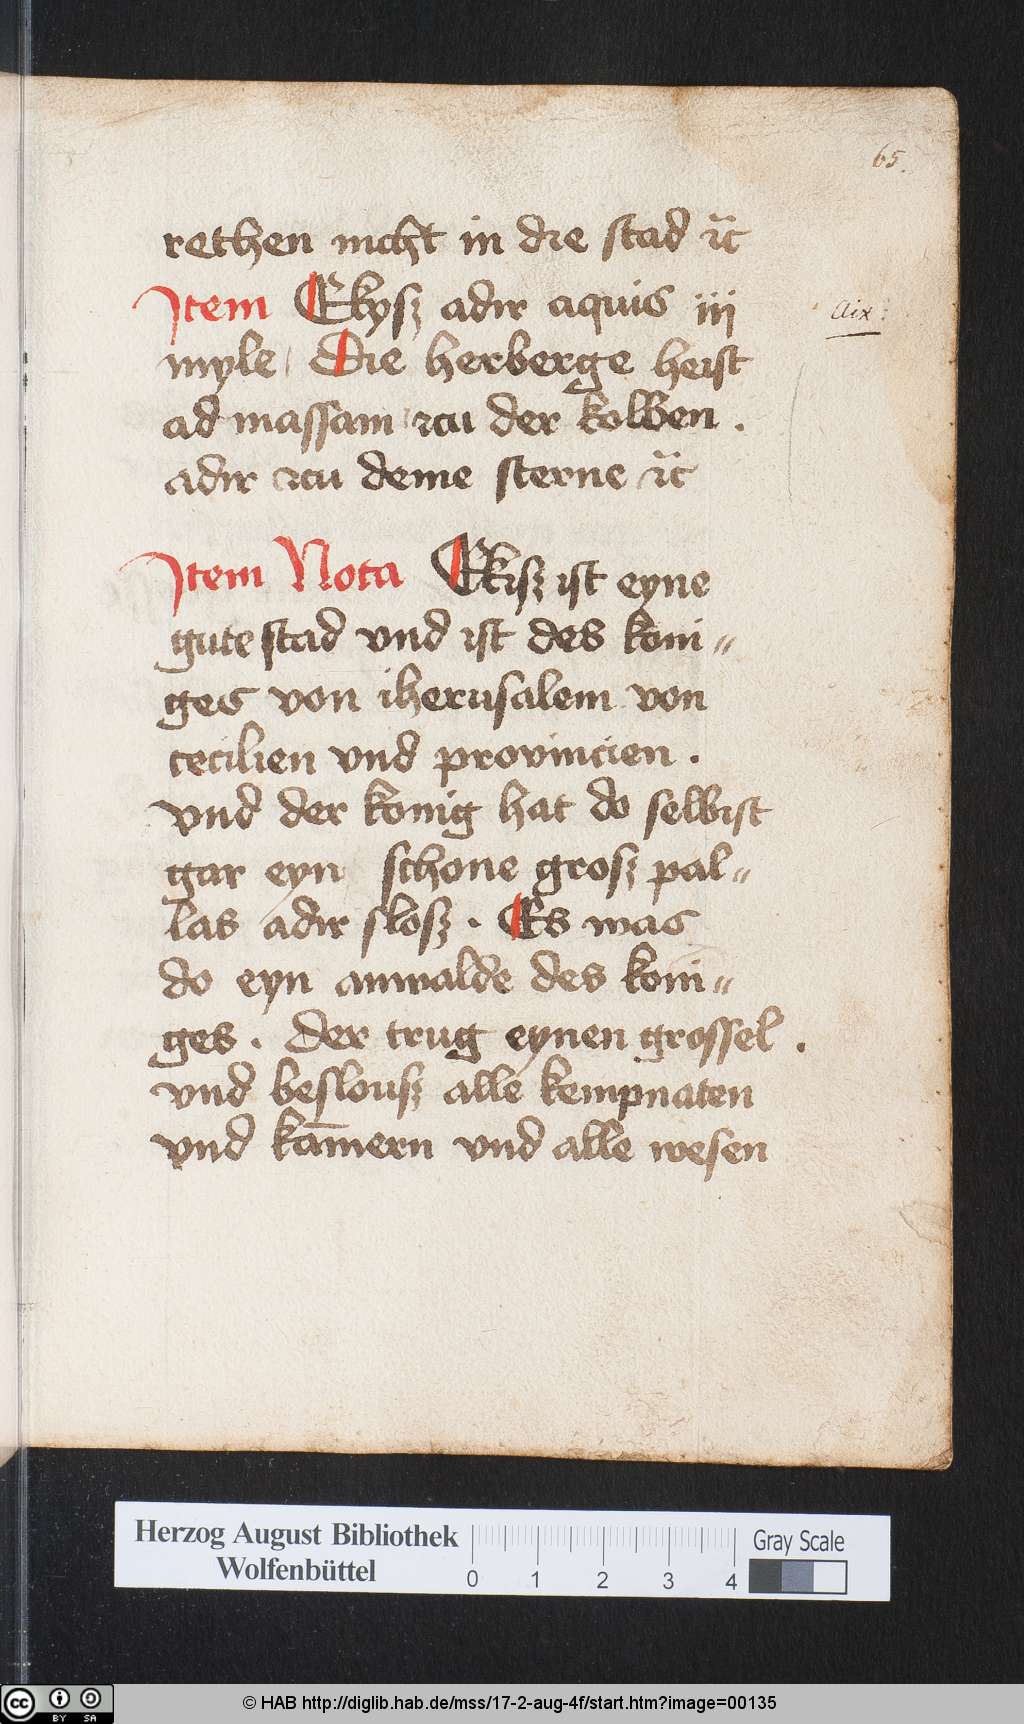 65.
rethen nicht in die stad ꝛc̈
Item Ekysz adir aquis iij
Aix:
myle Die herberge heist
ad massam zcu der kolben .
adir zcu deme sterne ꝛc̈
Item Nota Ekisz ist eyne
gute stad vnd ist des koni〃
ges von iherusalem von
cecilien vnd provincien .
vnd der konig hat do selbist
gar eyn schone grosz pal〃
las adir slosz . Es was
do eyn anwalde des koni〃
ges . der trug eynen grossel .
vnd beslousz alle kempnaten
vnd kam̄ern vnd alle wesen
Herzog August Bibliothek
Wolfenbüttel
0 1 2 3 4
Gray Scale
cc BY SA
© HAB http://diglib.hab.de/mss/17-2-aug-4f/start.htm?image=00135